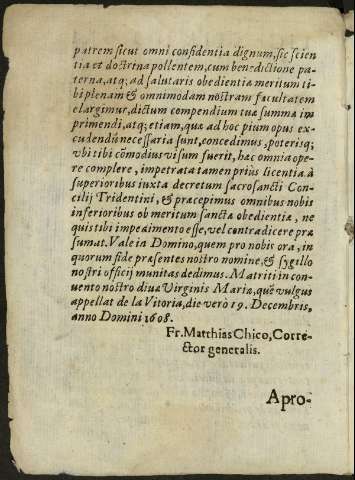 patrem sicut omni confidentia dignum, sic scien
tia et doctrina pollentem, cum benedictione pa-
terna, atq; ad salutaris obedientiæ meritum ti-
bi plenam & omnimodam nostram facultatem
elargimur, dictum compendium tuæ summæ im
primendi, atq; etiam, quæ ad hoc pium opus ex-
cudendũ necessaria sunt, concedimus, poterisq;
vbi tibi cõmodius visum fuerit, hæc omnia ope-
re complere, impetrata tamen prius licentia à
superioribus iuxta decretum sacrosancti Con-
cilij Tridentini, & præcepimus omnibus nobis
inferioribus ob meritum sanctæ obedientiæ, ne
quis tibi impedimento esse, vel contradicere præ
sumat. Vale in Domino, quem pro nobis ora, in
quorum fide præsentes nostro nomine, & sygillo
nostri officij munitas dedimus. Matriti in con-
uento nostro diuæ Virginis Mariæ, quẽ vulgus
appellat de la Vitoria, die verò 19. Decembris,
anno Domini 1608.
Fr. Matthias Chico, Corre-
ctor generalis.
Apro-